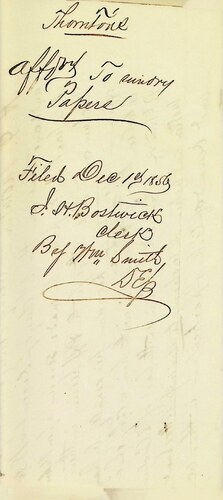 Thornton's
affvs To sundry
Papers
Filed Dec 1st 1856
J. H. Bostwick
clerk
By Wm Smith